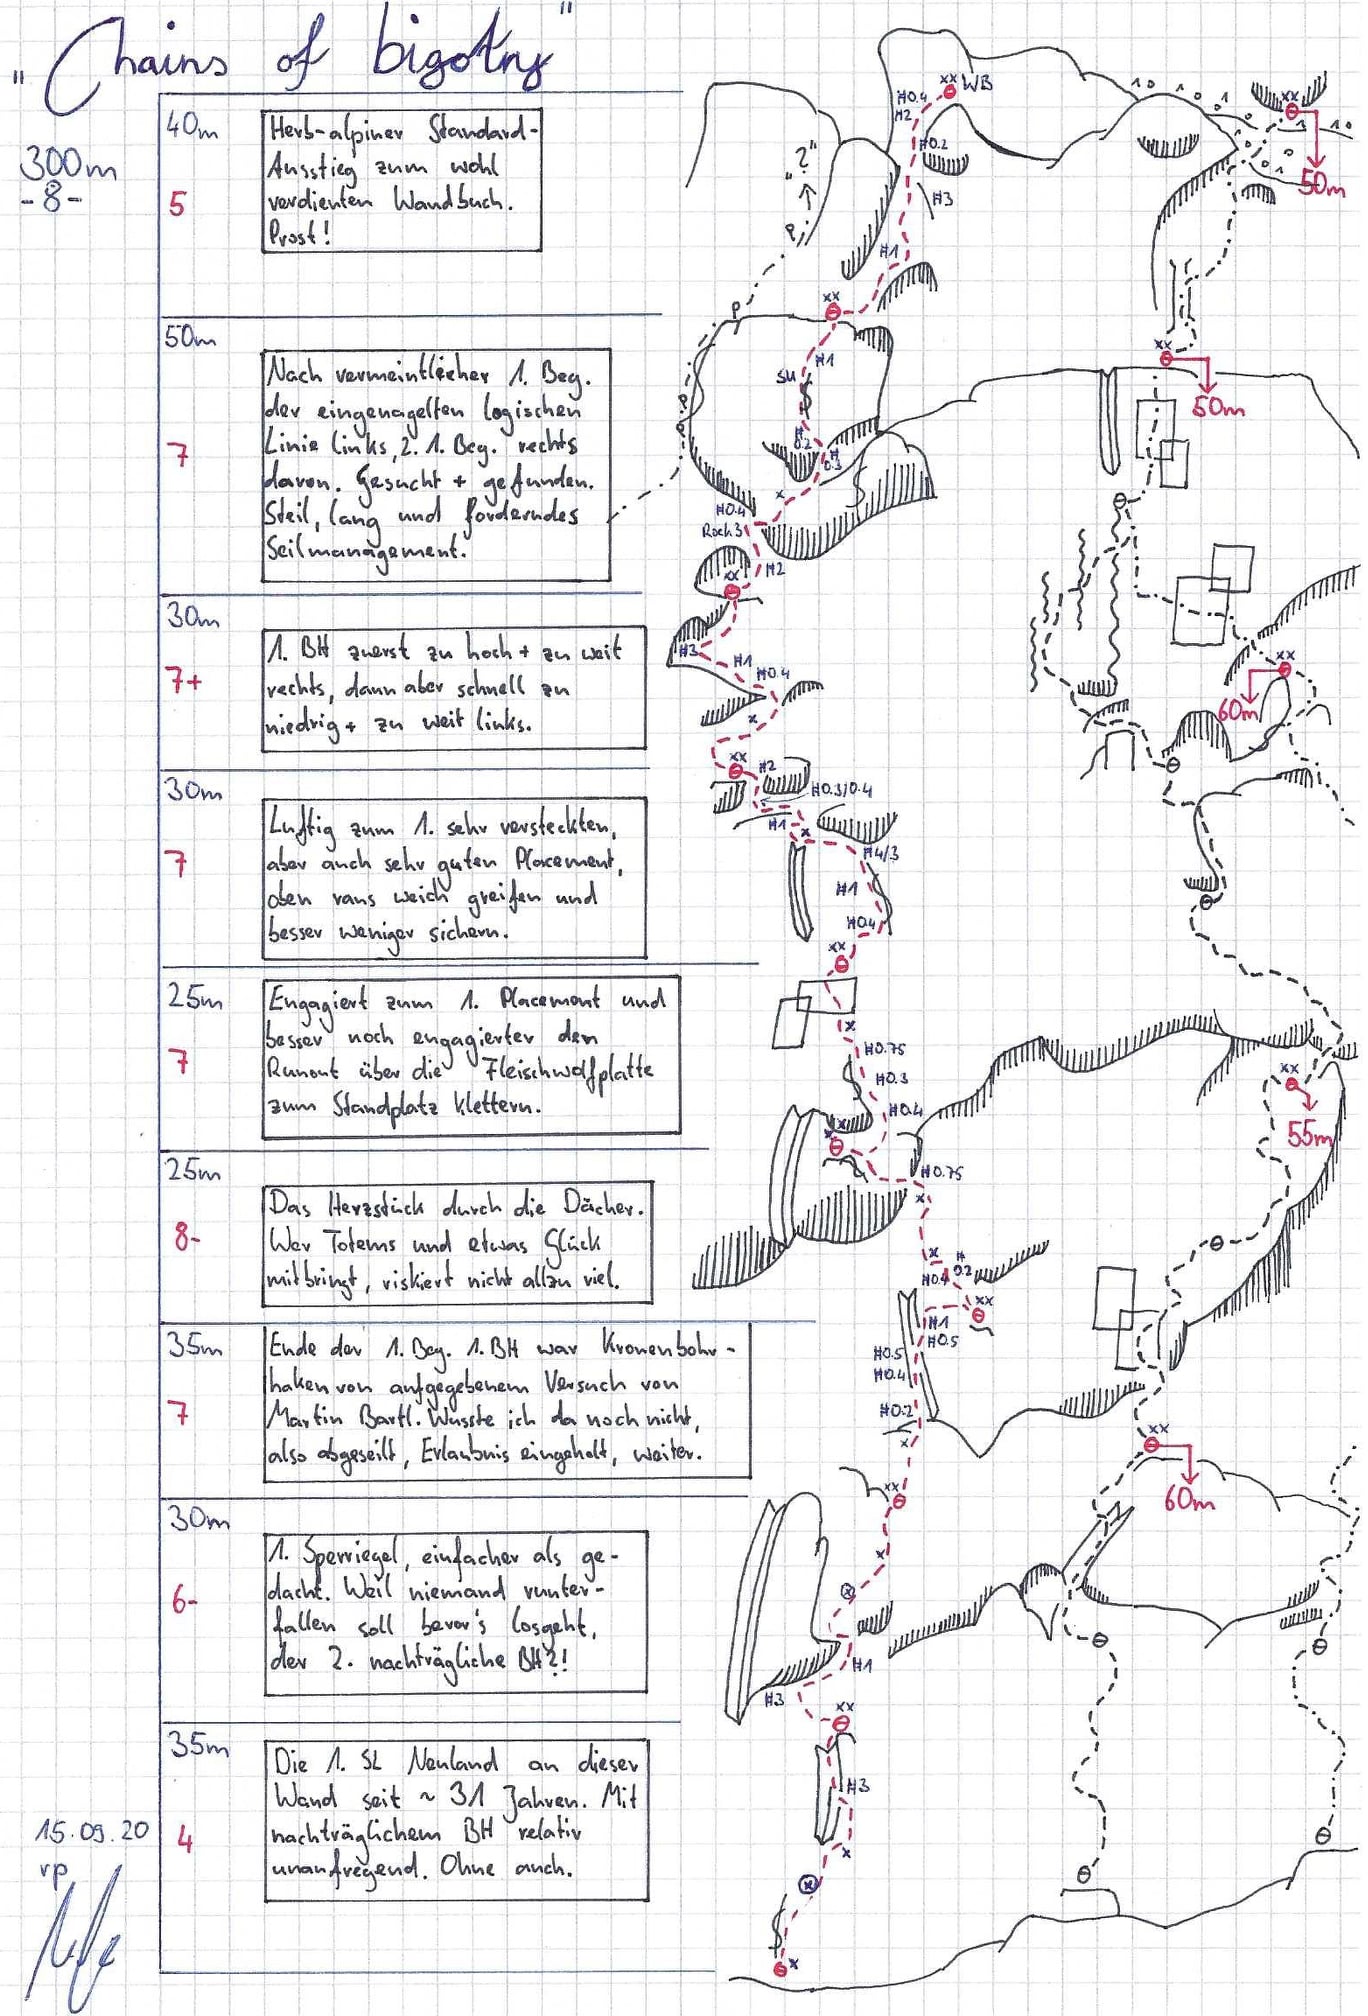 "Chains of bigotry"
300m
-8-
40m
5
Herb-alpiner Standard-
Ausstieg zum wohl
verdienten Wandbuch.
Prost!
50m
7
Nach vermeintlicher 1. Beg.
der eingenagelten logischen
Linie links, 2. 1. Beg. rechts
davon. Gesucht + gefunden.
Steil, lang und forderndes
Seilmanagement.
30m
7+
1. BH zuerst zu hoch + zu weit
rechts, dann aber schnell zu
niedrig + zu weit links.
30m
7
Luftig zum 1. sehr versteckten,
aber auch sehr guten Placement,
oben raus weich greifen und
besser weniger sichern.
25m
7
Engagiert zum 1. Placement und
besser noch engagierter den
Runout über die Fleischwolfplatte
zum Standplatz klettern.
25m
8-
Das Herzstück durch die Dächer.
Wer Totems und etwas Glück
mitbringt, riskiert nicht allzu viel.
35m
7
Ende der 1. Beg. 1. BH war Kronenbohr-
haken von aufgegebenem Versuch von
Martin Bartl. Wusste ich da noch nicht,
also abgeseilt, Erlaubnis eingeholt, weiter.
30m
6-
1. Sperriegel, einfacher als ge-
dacht. Weil niemand runter-
fallen soll bevor's losgeht,
der 2. nachträgliche BH?!
35m
4
Die 1. SL Neuland an dieser
Wand seit ~ 31 Jahren. Mit
nachträglichem BH relativ
unaufregend. Ohne auch.
15.09.20
rp
xx WB
H0.4
H2
H0.2
H3
H1
"?"
P.
xx
P
H1
SU
P
H
0.2
H
0.3
x
H0.4
Rock3
H2
xx
H3
H1
H0.4
x
xx
H2
H0.3/0.4
H1
x
H4/3
H1
H0.4
xx
x
H0.75
H0.3
H0.4
xx
H0.75
x
x
H
0.2
H0.4
xx
H1
H0.5
H0.5
H0.4
H0.2
x
xx
x
x
H1
H3
xx
H3
x
x
x
xx
50m
xx
50m
xx
60m
xx
55m
xx
60m